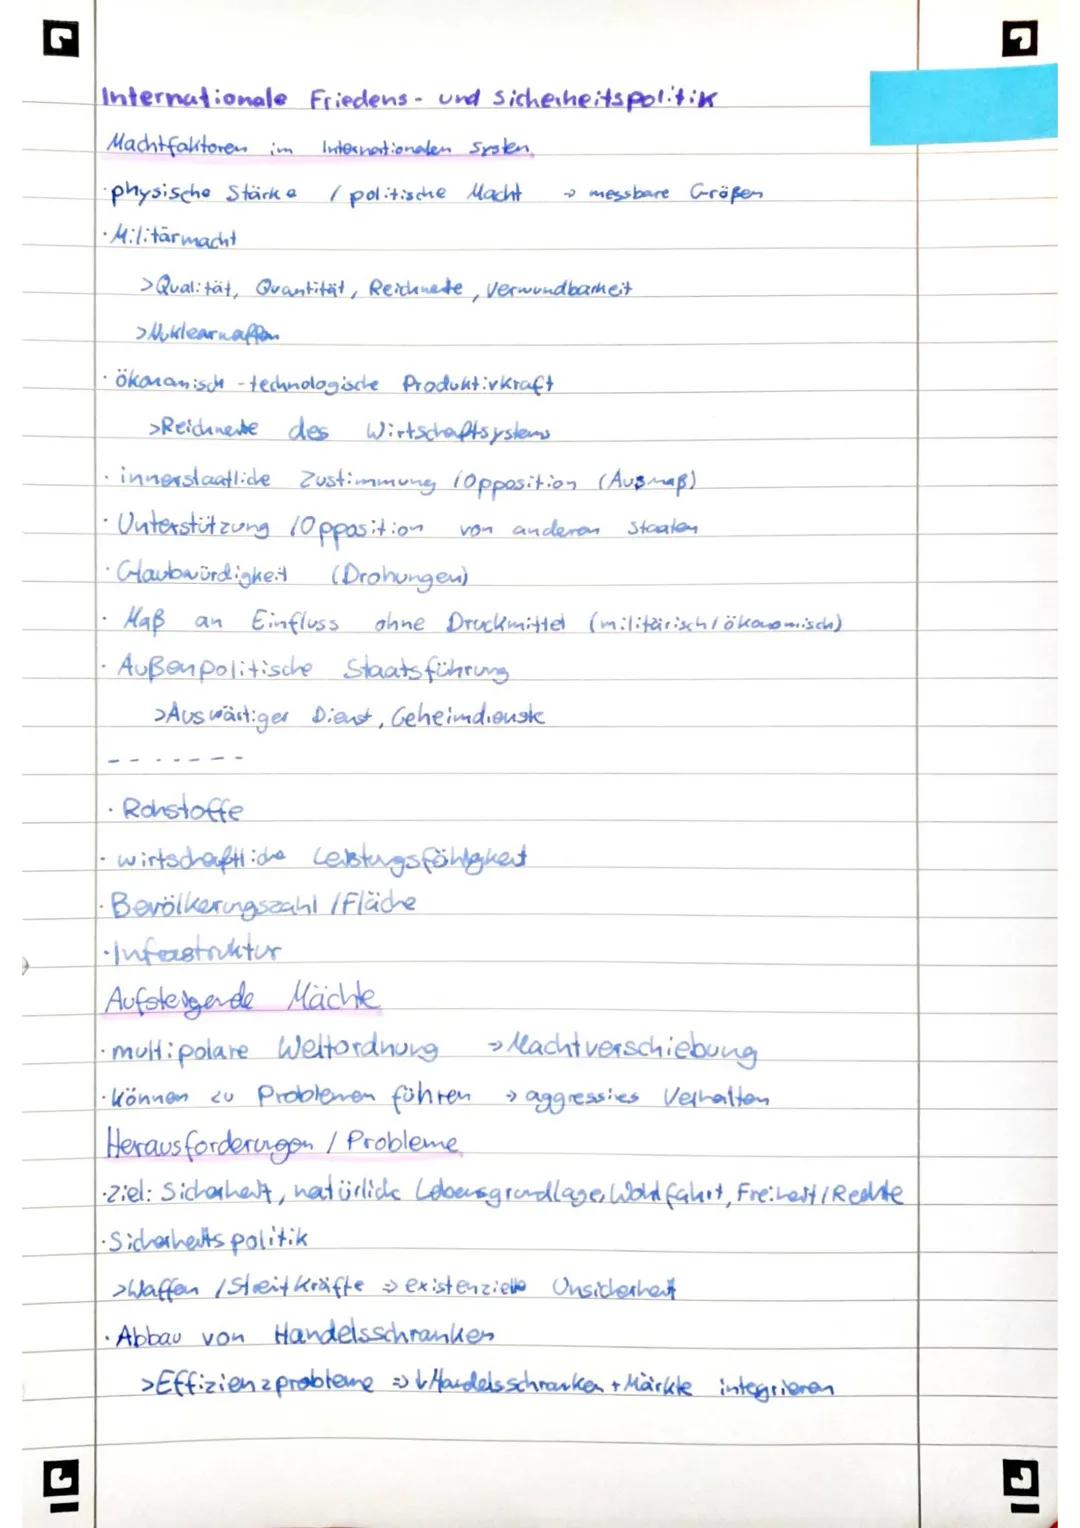 Internationale Friedens- und Sicherheitspolitik
Machtfaktoren im Internationalen System
·physische Stärke / politische Macht → messbare Größen
·Militärmacht
>Qualität, Quantität, Reichweite, Verwundbarkeit
>Nuklearwaffen
·ökonomisch-technologische Produktivkraft
>Reichweite des Wirtschaftsystems
·innerstaatliche Zustimmung /Opposition (Ausmaß)
·Unterstützung /Opposition von anderen Staaten
·Glaubwürdigkeit (Drohungen)
·Maß an Einfluss ohne Druckmittel (militärisch/ökonomisch)
·Außenpolitische Staatsführung
>Auswärtiger Dienst, Geheimdienste
-------
·Rohstoffe
·wirtschaftliche Leistungsfähigkeit
·Bevölkerungszahl /Fläche
·Infrastruktur
Aufsteigende Mächte
·multipolare Weltordnung → Machtverschiebung
·können zu Problemen führen → aggressives Verhalten
Herausforderungen / Probleme
·Ziel: Sicherheit, natürliche Lebensgrundlage, Wohlfahrt, Freiheit/Rechte
·Sicherheitspolitik
>Waffen /Streitkräfte ⇒ existenzielle Unsicherheit
·Abbau von Handelsschranken
>Effizienzprobleme ⇒ ↓Handelsschranken + Märkte integrieren